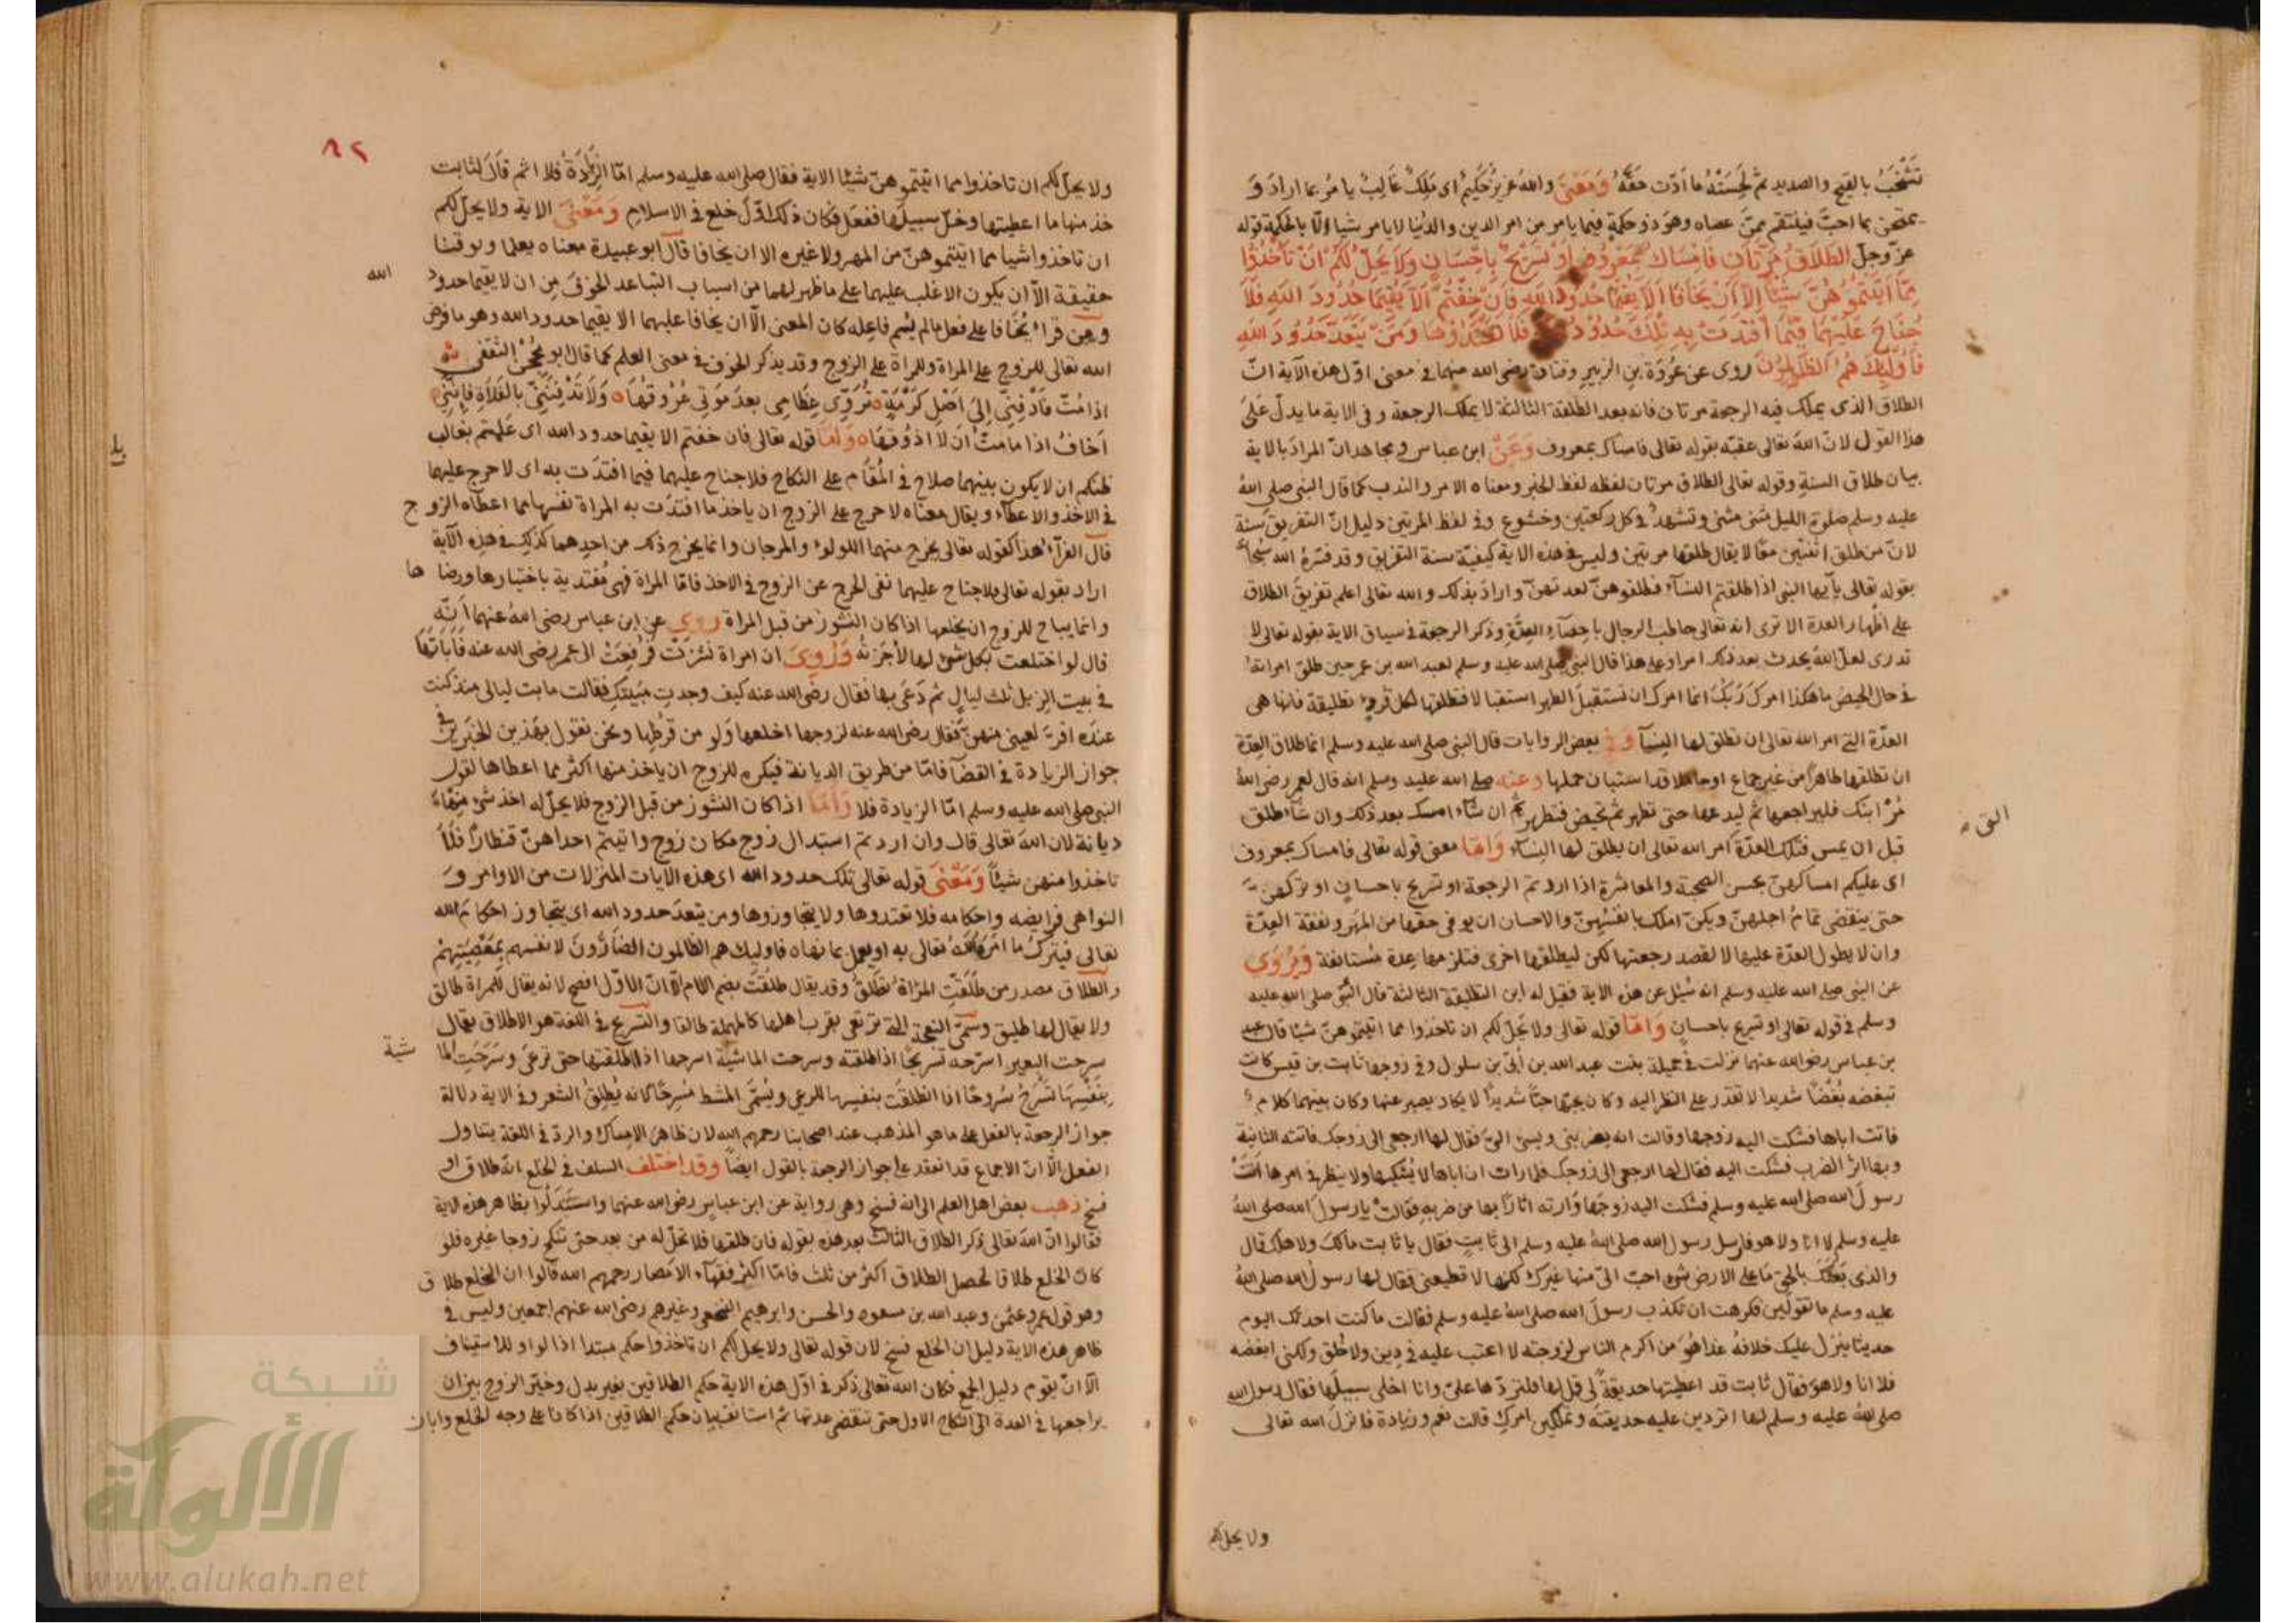 تَشْخَبُ بالقيح والصديد ثم لحسَتْهُ ما أدّت حقّهُ وَمَعْنَى والله عزيز حكيم اى مَلِكٌ غَالِبٌ يامُر بما اراد وَ
يمتحن بما احبّ فينتقم ممّن عصاه وهو ذو حكمةٍ فيما يامر من امر الدين والدُنيا لا يامر شيا الّا بالحكمة قوله
عزّ وجلّ الطَّلَاقُ مَرَّتَانِ فَامْسَاكٌ بِمَعْرُوفٍ اَوْ تَسْرِيْحٌ بِاِحْسَانٍ وَلَا يَحِلُّ لَكُمْ اَنْ تَأْخُذُوْا
مِمَّا اٰتَيْتُمُوْهُنَّ شَيْئًا اِلَّا اَنْ يَخَافَا اَلَّا يُقِيْمَا حُدُوْدَ اللّٰهِ فَاِنْ خِفْتُمْ اَلَّا يُقِيْمَا حُدُوْدَ اللّٰهِ فَلَا
جُنَاحَ عَلَيْهِمَا فِيْمَا افْتَدَتْ بِهِ تِلْكَ حُدُوْدُ فَلَا تَعْتَدُوْهَا وَمَنْ يَتَعَدَّ حُدُوْدَ اللّٰهِ
فَاُولٰئِكَ هُمُ الظّٰلِمُوْنَ روى عن عُروَة بن الزبير وقتادة رضى الله عنهما فى معنى اوّل هذه الآية انّ
الطلاق الذى يملك فيه الرجعة مرتان فانه بعد الطلقة الثالثة لا يملك الرجعة وفى الاية ما يدلّ عَلَى
هذا القول لانّ الله تعالى عقبه بقوله تعالى فامساك بمعروف وَعَنْ ابن عباس ومجاهد انّ المرادَ بالاية
بيان طلاق السنة وقوله تعالى الطلاق مرتان لفظه لفظ الخبر ومعناه الامر والندب كما قال النبى صلى الله
عليه وسلم صلوة الليل مثنى مثنى وتشهد فى كل ركعتين وخشوع وفى لفظ المرتين دليل انّ التفريق سنة
لانّ من طلق اثنتين معًا لا يقال طلقها مرتين وليس فى هذه الاية كيفيّة سنة التفريق وقد فسّرهُ الله
بقوله تعالى يآ ايها النبى اذا طلقتم النسآء فطلقوهنّ لعدتهنّ واراد بذلك والله تعالى اعلم تفريق الطلاق
على اطهار العدة الا ترى انه تعالى خاطب الرجال باحصآء العِدّة وذكر الرجعة فى سياق الاية بقوله تعالى لا
تدرى لعلّ الله يحدث بعد ذلك امرا وعلى هذا قال النبى صلى الله عليه وسلم لعبد الله بن عمر حين طلق امراته
فى حال الحيض ما هكذا امركَ رَبُّكَ انما امرك ان تستقبل الطهر استقبالا فتطلقها لكل قرءٍ تطليقة فانها هى
العدّة التى امر الله تعالى ان تطلق لها النسآ وَفِى بعض الروايات قال النبى صلى الله عليه وسلم انما طلاق العِدّة
ان تطلقها طاهرًا من غير جماع او حاملا قد استبان حملها وعنه صلى الله عليه وسلم انه قال لعمر رضى الله
مُرْ ابنك فليراجعها ثم ليدعها حتى تطهر ثم تحيض فتطهر ثم ان شآء امسك بعد ذلك وان شآء طلق
قبل ان يمس فتلك العدّة امر الله تعالى ان يطلق لها النسآء وَامَّا معنى قوله تعالى فامساك بمعروف
التى
اى عليكم امساكهنّ بحسن الصحبة والمعاشرة اذا اردتم الرجعة او تسريح باحسان او تركهنّ
حتى ينقضى تمامُ اجلهنّ ويكنّ املك بانفسهنّ والاحسان ان يوفى حقها من المهر ونفقة العِدّة
وان لا يطول العدّة عليها الا لقصد رجعتها لكن ليطلقها اخرى فتلزمها عدة مُستانفة وَيُرْوَى
عن النبى صلى الله عليه وسلم انه سُئل عن هذه الاية فقيل له اين التطليقة الثالثة قال النّبى صلى الله عليه
وسلم فى قوله تعالى او تسريح باحسانٍ وَامّا قوله تعالى ولا يحلّ لكم ان تاخذوا مما اتيتموهنّ شيئا قال عبد
بن عباس رضى الله عنهما نزلت فى جميلة بنت عبد الله بن أبىّ بن سلول وفى زوجها ثابت بن قيس كانت
تبغضه بُغْضًا شديدا لا تقدر على النظر اليه وكان يحبّها حبًّا شديدًا لا يكاد يصبر عنها وكان بينهما كلام
فاتت اباها فشكت اليه زوجها وقالت انه يضربنى ويسىء الىّ فقال لها ارجعى الى زوجك فاتته الثانية
وبها اثر الضرب فشكت اليه فقال لها ارجعى الى زوجك فلما رات ان اباها لا يُشكيها ولا ينظر فى امرها اَتَتْ
رسولَ الله صلى الله عليه وسلم فشكت اليه زوجها وَارته اثارًا بها من ضربهِ فقالتْ يا رسولَ الله صلى الله
عليه وسلم لا انا ولا هو فارسل رسول الله صلى الله عليه وسلم الى ثابتٍ فقال يا ثابت مالكَ ولاهلك قال
والذى بعثكَ بالحق مَا على الارض شىء احبّ الىّ منها غيرك لكنها لا تطيعنى فقال لها رسول الله صلى الله
عليه وسلم ما تقولين فكرهت ان تكذب رسولَ الله صلى الله عليه وسلم فقالت ما كنت احدثك اليوم
حديثا ينزل عليك خلافهُ غدا هُوَ من اكرم الناس لزوجته لا اعتب عليه فى دِين ولا خُلق ولكنى ابغضه
فلا انا ولا هو فقال ثابت قد اعطيتها حديقةً لى قل لها فلتردّها علىّ وانا اخلى سبيلها فقال رسول الله
صلى الله عليه وسلم لها اتردين عليه حديقته وتملكين امركِ قالت نعم وزيادة فانزلَ الله تعالى
ولا يحل لكم
٨٢
ولا يحلّ لكم ان تاخذوا مما اتيتموهنّ شيئا الاية فقال صلى الله عليه وسلم امّا الزّيَادَةُ فلا اثم قالَ لثابت
خذ منها ما اعطيتها وخلّ سبيلها ففعَل فكان ذلك اوّلَ خلع فى الاسلام وَمَعْنَى الاية ولا يحلّ لكم
ان تاخذوا شيا مما اتيتموهنّ من المهر ولا غيره الا ان يخافا قال ابو عبيدة معناه يعلما ويوقنا
حقيقة الّا ان يكون الاغلب عليهما على ما ظهر لهما من اسباب التباعد الخوفَ مِن ان لا يقيما حدود
الله
ومن قراء يُخَافا على فعل ما لم يُسم فاعِله كان المعنى الّا ان يخافا عليهما الا يقيما حدود الله وهو ما فرض
الله تعالى للزوج على المراة وللمراة على الزوج وقد يذكر الخوف فى معنى العلم كما قال ابو مِحْجَنْ الثقفى
اذا مُتّ فَادْفِنِّى اِلىَ اَصْلِ كَرْمَةٍ تُرَوِّى عِظَامِى بعدَ مَوتِى عُرْوقُهَا وَلَا تَدْفِنَنِّىْ بالفَلَاةِ فاِنَّنِىْ
اَخافُ اذا ما متّ اَنَ لَا اذُوقهَا وَامَّا قوله تعالى فان خفتم الا يقيما حدود الله اى عَلمتم بغالب
ظنكم ان لا يكون بينهما صلاح فى المُقَام على النكاح فلا جناح عليهما فيما افتدَت به اى لا حرج عليهما
فى الاخذ والاعطآء ويقال معناه لا حرج على الزوج ان ياخذ ما افتدَت به المراة نفسها مما اعطاه الزوج
قال الفرّآء هذا كقوله تعالى يخرج منهما اللولوُ والمرجان وانما يخرج ذلك من احدِهما كذلك فى هذه الآية
اراد بقوله تعالى فلا جناح عليهما نفى الحرج عن الزوج فى الاخذ فامّا المراة فهى مُفتدية باختيارها ورضاها
وانما يباح للزوج ان يخلعها اذا كان النشوز من قبل المراة رُوِىَ عن ابن عباس رضى الله عنهما اَنّه
قال لو اختلعت بكل شىء لها لاَجَزتهُ وَرُوِىَ ان امراة نشزت فرُفِعَتْ الى عمر رضى الله عنه فَاَبَاتَهَا
فى بيت الزبل ثلث ليالٍ ثم دَعَى بها فقال رضى الله عنه كيف وجدتِ مَبيتكِ فقالت ما بت ليالى منذ كنت
عندَه اقرّ لعينى منهنّ فقال رضى الله عنه لزوجها اخلعها وَلو من قرطِها ونحن نقول بهَذين الخبَرين فى
جواز الزيادة فى القضآ فامّا من طريق الديانة فيكره للزوج ان ياخذ منها اكثر مما اعطاها لقول
النبى صلى الله عليه وسلم امّا الزيادة فلا وَامَّا اذا كان النشوز من قبل الزوج فلا يحلّ له اخذ شىء مِنْهَا
ديانة لان الله تعالى قال وان اردتم استبدال زوج مكان زوج واتيتم احداهنّ قنطارًا فَلَا
تاخذوا منهن شيئاً وَمَعْنَى قوله تعالى تلك حدود الله اى هذه الايات المنزلات من الاوامر وَ
النواهى فرايضه واحكامه فلا تعتدوها ولا يتجاوزوها ومن يتعدّ حدود الله اى يتجاوز احكامَ الله
تعالى فيتركُ ما امرَ الله تعالى به او يعمل بما نهاه فاوليك هم الظالمون الضَارّونَ لانفسهم بِمَعْصِيَتِهِمْ
والطلاق مصدر من طَلُقَتِ المرْاة تَطْلُق وقد يقال طلُقَت بضم اللام الّا انّ الاوّل افصح لانه يقال للمراة طالق
ولا يقال لها طليق وسمّى النعجة التى ترتعى بقرب اهلها كالمهملة طالقا والتسريح فى اللغة هو الاطلاق يقال
سرحت البعير اسرّحه تسريحًا اذا اطلقته وسرحت الماشية اسرحها اذا اطلقتها حتى ترعَى وسَرَحَتِ الما
شية
بنَفْسِهَا تَسْرَحُ سُروحًا اذا انطلقَت بنفسِها للرعى ويُسمَّى المشط مُسرحًا كانه يُطلِقُ الشعر وفى الاية دلالة
جواز الرجعة بالفعل على ما هو المذهب عند اصحابنا رحمهم الله لان ظاهرَ الامساك والردّ فى اللغة يتناول
الفعل الّا انّ الاجماع قد انعقد على جواز الرجعة بالقول ايضًا وقد اختلف السلف فى الخلع انّه طلاق او
فسخ ذهب بعض اهل العلم الى انه فسخ وهى رواية عن ابن عباس رضى الله عنهما واستَدَلُوا بظاهر هذه الاية
فقالوا انّ الله تعالى ذكر الطلاق الثالث بعد هذه بقوله فان طلقها فلا تحلّ له من بعد حتى تنكح زوجا غيره فلو
كانَ الخلع طلاقا لحصل الطلاق اكثر من ثلث فامّا اكثر فقهآء الامصار رحمهم الله قالوا ان الخلع طلاق
وهو قول عمر وعثمٰن وعبد الله بن مسعود والحسن وابرهيم النخعى وغيرهم رضى الله عنهم اجمعين وليس فى
ظاهر هذه الاية دليل ان الخلع فسخ لان قوله تعالى ولا يحل لكم ان تاخذوا حكم مبتدا اذا لواو للاستيناف
الّا ان يقوم دليل الجمع فكان الله تعالى ذكر فى اوّل هذه الاية حكم الطلاقين بغير بدل وخيّر الزوج بين ان
يراجعها فى العدة الى النكاح الاول حتى تنقضى عدتها ثم استانف بيان حكم الطلاقين اذا كانا على وجه الخلع وابان
شبكة
الألوكة
www.alukah.net